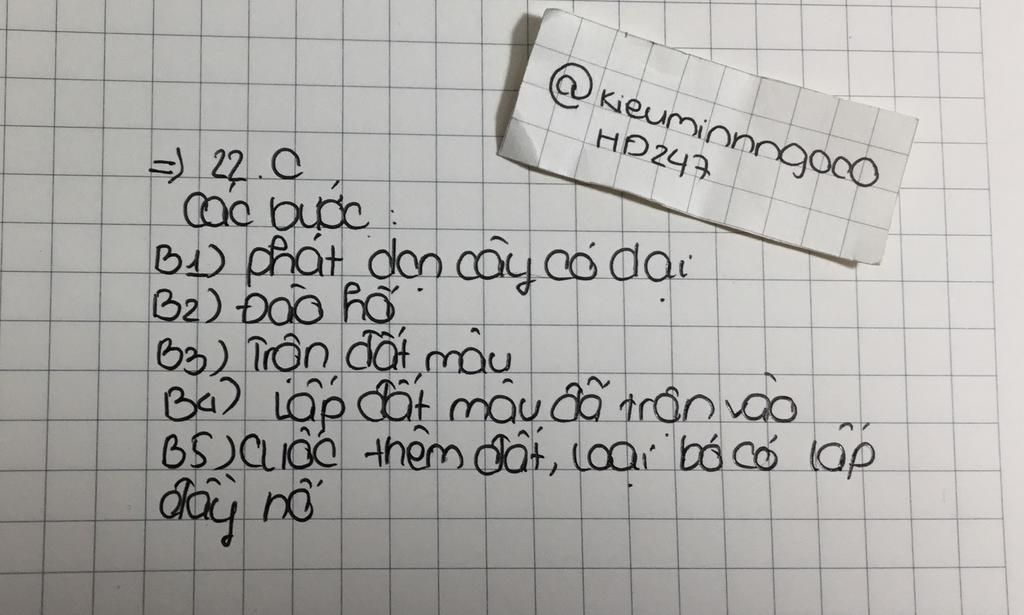 @kieuminnngoco
HD247
=) 22. C
Các bước:
B1) phát dọn cây cỏ dại
B2) Đào hố
B3) Trộn đất màu
B4) Lấp đất màu đã trộn vào
B5) Cuốc thêm đất, loại bỏ cỏ lấp
đầy hố